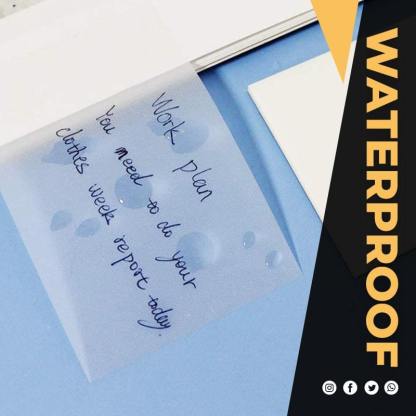 Work plan
You need to do your
clothes week report today.
WATERPROOF